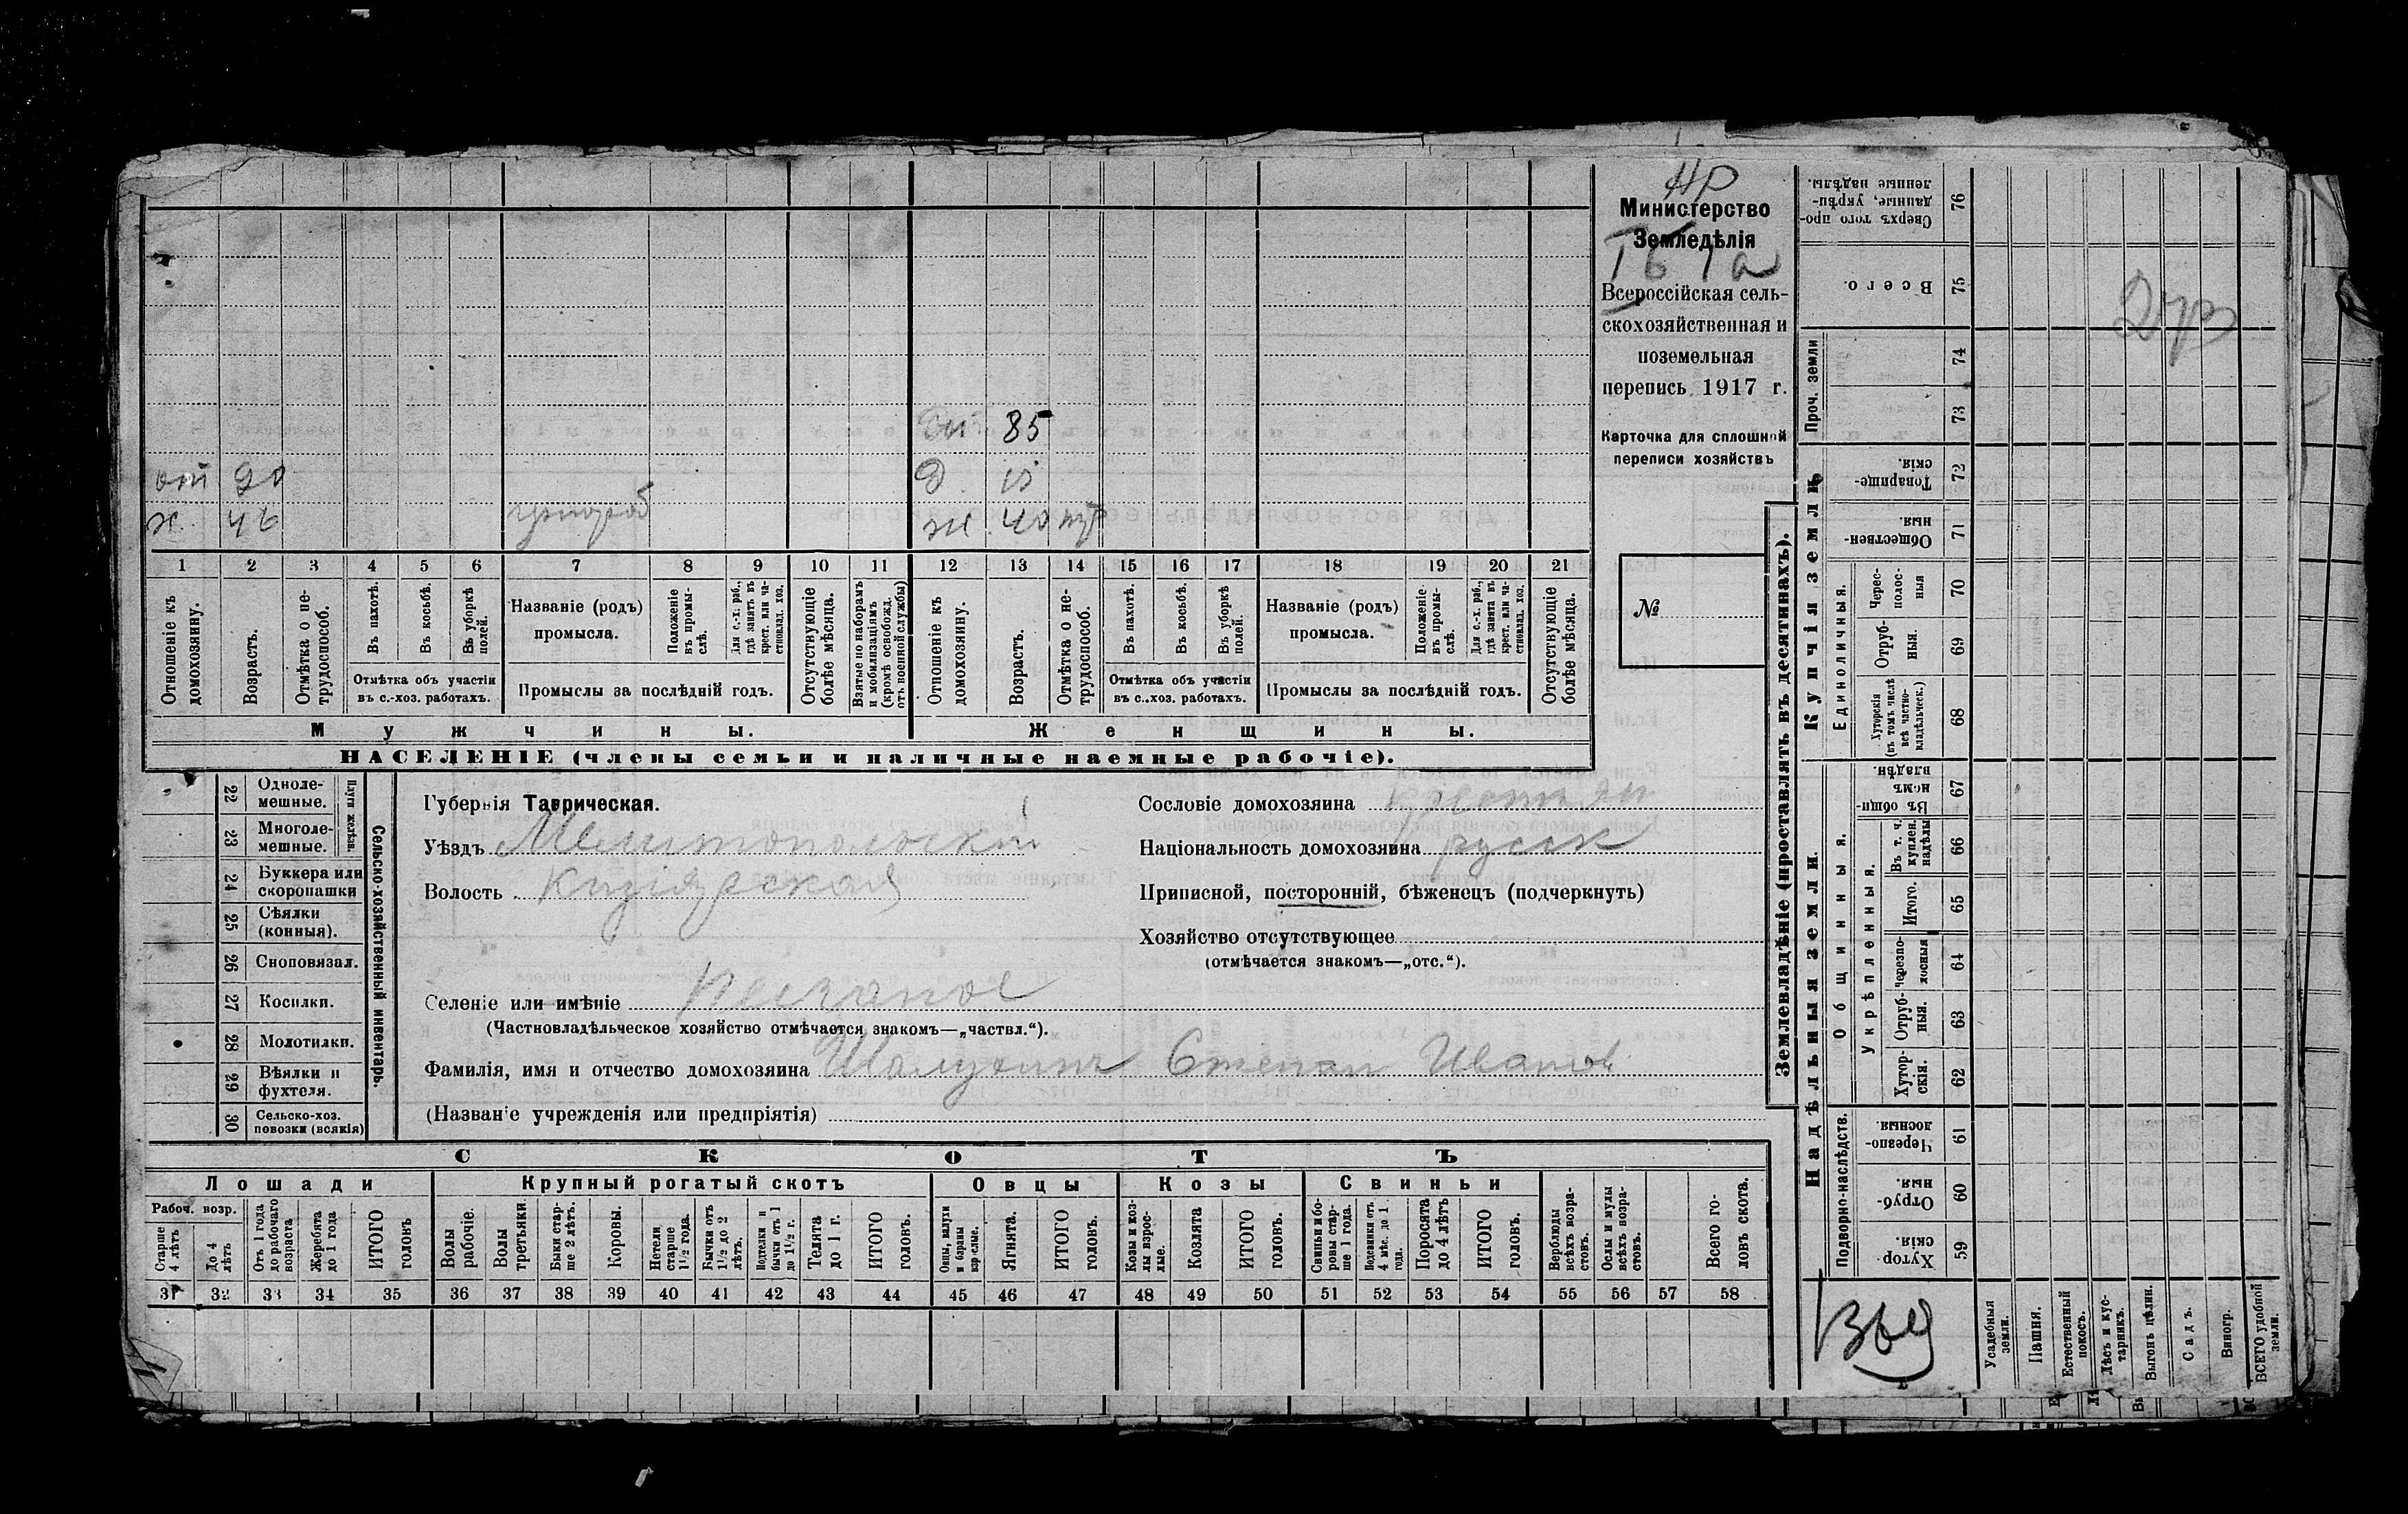 НР
Министерство
Земледѣлія
Всероссійская сель-
скохозяйственная и
поземельная
перепись 1917 г.
Карточка для сплошной
переписи хозяйствъ
№
85
от 90
Д.
ж. 40
1 2 3 4 5 6 7 8 9 10 11 12 13 14 15 16 17 18 19 20 21
Отношеніе къ домохозяину.
Возрастъ.
Отмѣтка о не-трудоспособ.
Въ пахотѣ.
Въ косьбѣ.
Въ уборкѣ полей.
Отмѣтка объ участіи
въ с.-хоз. работахъ.
Названіе (родъ)
промысла.
Положеніе въ промы-слѣ.
Для с.-х. раб., гдѣ занятъ въ крест. или ча-стновлад. хоз.
Промыслы за послѣдній годъ.
Отсутствующіе болѣе мѣсяца.
Взятые по наборамъ и мобилизаціямъ (кромѣ освобожд. отъ военной службы)
Отношеніе къ домохозяину.
Возрастъ.
Отмѣтка о не-трудоспособ.
Въ пахотѣ.
Въ косьбѣ.
Въ уборкѣ полей.
Отмѣтка объ участіи
въ с.-хоз. работахъ.
Названіе (родъ)
промысла.
Положеніе въ промы-слѣ.
Для с.-х. раб., гдѣ занята въ крест. или ча-стновлад. хоз.
Промыслы за послѣдній годъ.
Отсутствующіе болѣе мѣсяца.
Мужчины. Женщины.
НАСЕЛЕНІЕ (члены семьи и наличные наемные рабочіе).
Сельско-хозяйственный инвентарь.
Плуги желѣзн.
22 Одноле-мешные.
23 Многоле-мешные.
24 Буккера или скоропашки
25 Сѣялки (конныя).
26 Сноповязал.
27 Косилки.
28 Молотилки.
29 Вѣялки и фухтеля.
30 Сельско-хоз. повозки (всякія)
Губернія Таврическая.
Уѣздъ Мелитопольскій
Волость Кизіярская
Селеніе или имѣніе Песчаное
(Частновладѣльческое хозяйство отмѣчается знакомъ—„частвл.“).
Фамилія, имя и отчество домохозяина Степан Иванов
(Названіе учрежденія или предпріятія)
Сословіе домохозяина
Національность домохозяина русск
Приписной, посторонній, бѣженецъ (подчеркнуть)
Хозяйство отсутствующее
(отмѣчается знакомъ—„отс.“).
СКОТЪ
Лошади Крупный рогатый скотъ Овцы Козы Свиньи
Рабоч. возр.
Старше 4 лѣтъ
До 4 лѣтъ
Отъ 1 года до рабочаго возраста
Жеребята до 1 года
ИТОГО головъ
Волы рабочіе.
Волы третьяки.
Быки стар-ше 2 лѣтъ.
Коровы.
Нетели старше 1½ года.
Бычки отъ 1½ до 2 лѣтъ.
Подтелки и бычки отъ 1 до 1½ г.
Телята до 1 г.
ИТОГО головъ.
Овцы, валухи и бараны взрослые.
Ягнята.
ИТОГО головъ.
Козы и коз-лы взрос-лые.
Козлята
ИТОГО головъ.
Свиньи и бо-ровы стар-ше 1 года.
Подсвинки отъ 4 мѣс. до 1 года.
Поросята до 4 лѣтъ
ИТОГО головъ.
Верблюды всѣхъ возра-стовъ.
Ослы и мулы всѣхъ возра-стовъ.
Всего го-ловъ скота.
31 32 33 34 35 36 37 38 39 40 41 42 43 44 45 46 47 48 49 50 51 52 53 54 55 56 57 58
Землевладѣніе (проставлять въ десятинахъ).
Купчія земли.
Надѣльныя земли.
Сверхъ того про-данные, укрѣп-ленные надѣлы. 76
Всего. 75
Проч. земли
74
73
Товарище-скія. 72
Обществен-ныя. 71
Единоличныя.
Черес-полос-ныя 70
Отруб-ныя. 69
Хуторскія (въ томъ числѣ всѣ частно-владѣльческ.) 68
Общинныя.
Въ общи-номъ владѣн. 67
Укрѣпленныя.
Въ т. ч. куплен. надѣлы 66
Итого. 65
Черезпо-лосныя 64
Отруб-ныя. 63
Хутор-скія. 62
Подворно-наслѣдств.
Черезпо-лосныя. 61
Отруб-ныя. 60
Хутор-скія. 59
Усадебныя земли.
Пашня.
Естественный покосъ.
Лѣсъ и кус-тарникъ.
Выгонъ цѣлин.
Садъ.
Виногр.
ВСЕГО удобной земли.